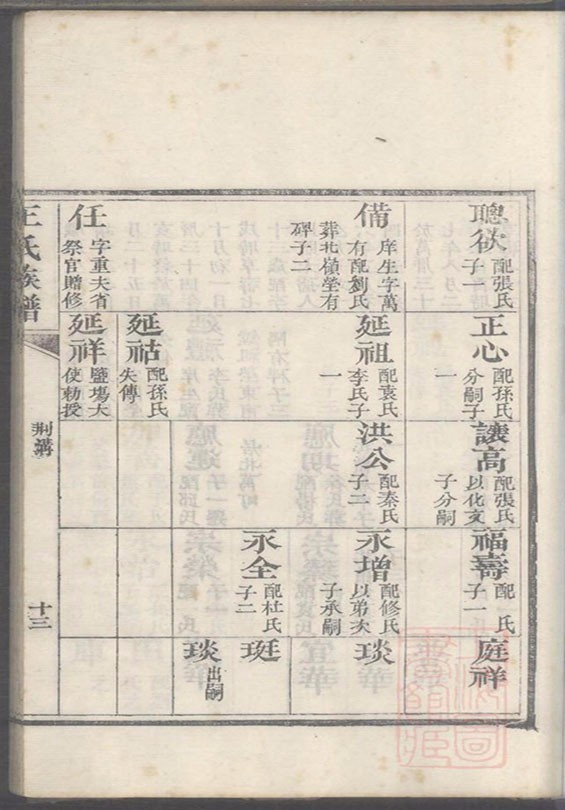 聰欲
配張氏
子一
備
庠生字萬
有配劉氏
葬北嶺塋有
碑子二
任
字重夫省
祭官贈修
正心
配孫氏
分嗣子
一
延祖
配袁氏
李氏子
一
延祜
配孫氏
失傳
延祥
鹽場大
使勅授
讓高
配張氏
以化文
子分嗣
洪公
配秦氏
子二
福壽
配 氏
子一
永增
配修氏
以弟次
子承嗣
永全
配杜氏
子二
庭祥
琰
珽
琰
出嗣
王氏族譜
荆溝
十三